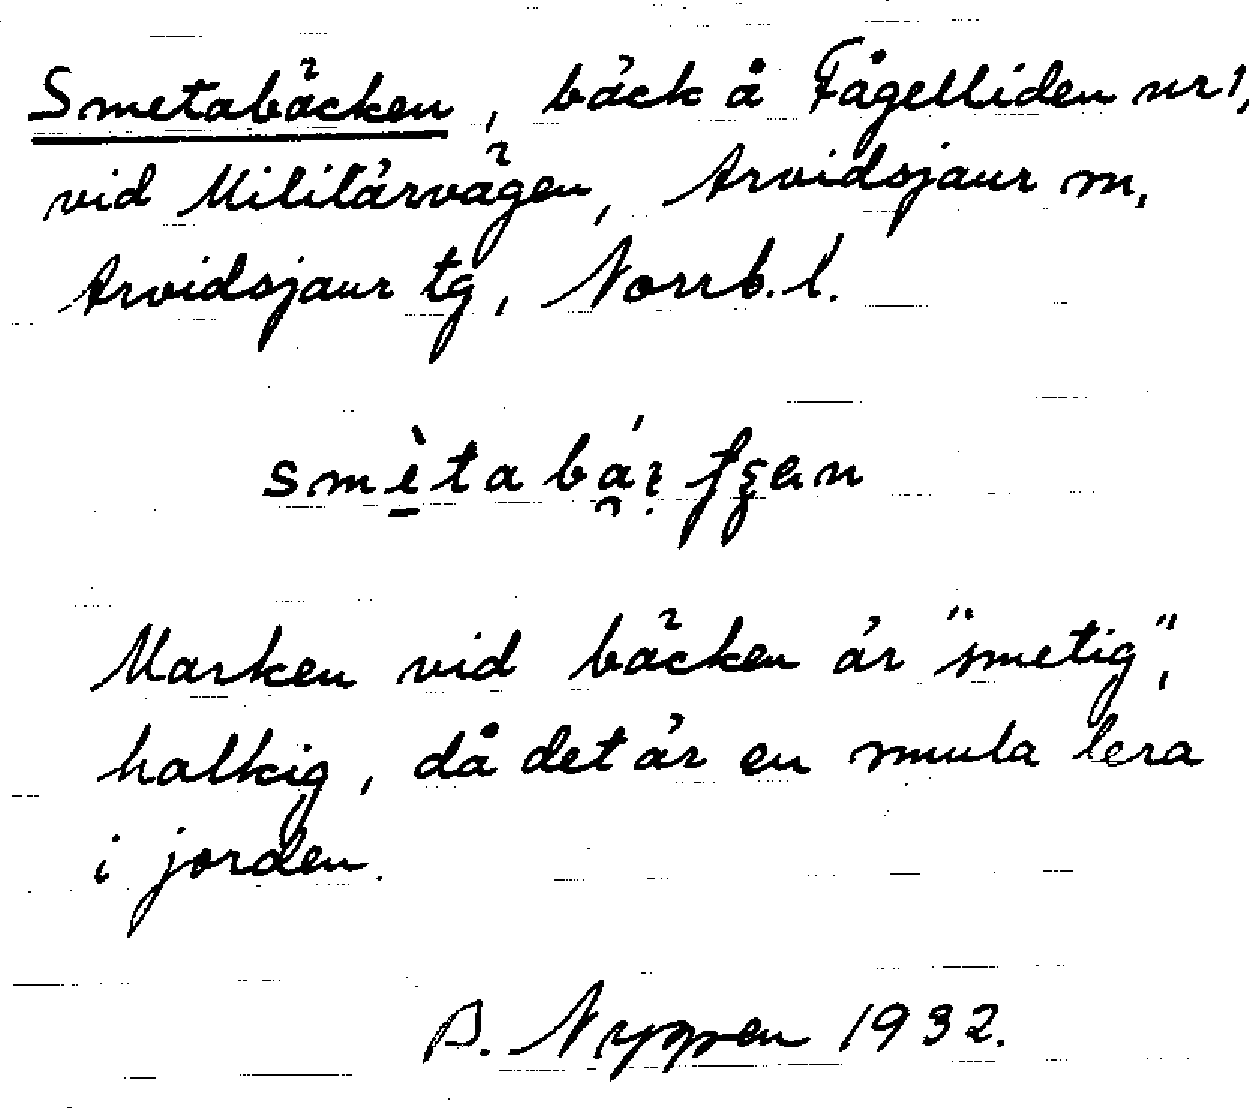 Smetabäcken, bäck å Fågelliden nr 1,
vid Militärvägen, Arvidsjaur m,
Arvidsjaur tg, Norrb. l.
Marken vid bäcken är "smetig",
halkig, då det är en smula lera
i jorden.
A. Nyppen 1932.